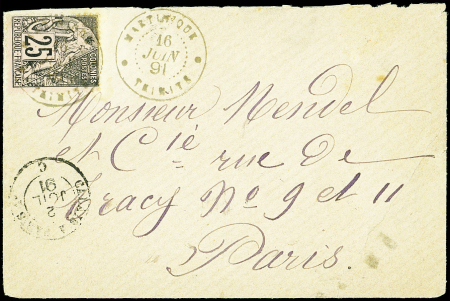 25
COLONIES
RÉPUBLIQUE FRANÇAISE
MARTINIQUE
16
JUIN
91
TRINITÉ
Monsieur Mendel
et Cie rue de
Tracy No 9 et 11
Paris.
CALAIS A PARIS
2
JUIL
91
C